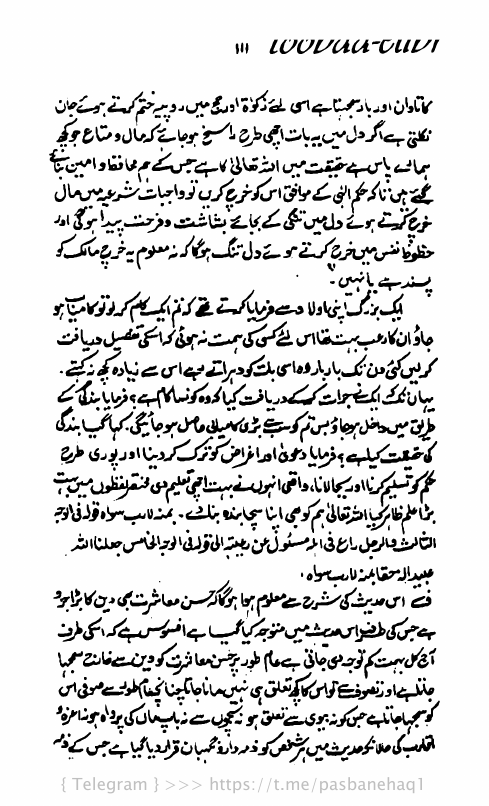 ۱۱۱ toobaa-elibr
کا تاوان اور بار سمجھتا ہے اسی لئے زکوٰۃ اور حج میں روپیہ ختم کرتے ہوئے جان
نکلتی ہے اگر دل میں یہ بات اچھی طرح راسخ ہوجائے کہ مال و متاع جو کچھ
ہمارے پاس ہے حقیقت میں اللہ تعالیٰ کا ہے جس کے ہم محافظ و امین بنائے
گئے ہیں تاکہ حکم الٰہی کے موافق اس کو خرچ کریں تو واجبات شرعیہ میں مال
خرچ کرتے ہوئے دل میں تنگی کے بجائے بشاشت و فرحت پیدا ہوگی اور
حظوظ نفس میں خرچ کرتے ہوئے دل تنگ ہوگا کہ نہ معلوم یہ خرچ مالک کو
پسند ہے یا نہیں۔
ایک بزرگ اپنی اولاد سے فرمایا کرتے تھے کہ تم ایک کام کر لو تو کامیاب ہو
جاؤ ان کا رعب بہت تھا اس لئے کسی کی ہمت نہ ہوئی کہ اسکی تفصیل دریافت
کریں کئی دن تک بار بار وہ اسی بات کو دہراتے رہے اس سے زیادہ کچھ نہ کہتے۔
یہاں تک ایک نے جرات کرکے دریافت کیا کہ وہ کونسا کام ہے؟ فرمایا بندگی کے
طریق میں داخل ہو جاؤ بس تم کو سب سے بڑی کامیابی حاصل ہو جائیگی۔ کہا گیا بندگی
کی حقیقت کیا ہے؟ فرمایا دعویٰ اور اغراض کو ترک کر دینا اور پوری طرح
حکم کو تسلیم کرنا اور بجالانا، واقعی انہوں نے بہت اچھی تعلیم دی مختصر لفظوں میں بہت
بڑا علم ظاہر کیا اللہ تعالیٰ ہم کو بھی اپنا سچا بندہ بنائے۔ بمنہ لارب سواہ قولہ فی الوجہ
الثالث والرجل راع فی اہلہ مسئول عن رعیتہ الی قولہ فی الوجہ الخامس جعلنا اللہ
عبیدالہ حقا بمنہ لارب سواہ۔
ف اس حدیث کی شرح سے معلوم ہوا ہوگا کہ حسن معاشرت بھی دین کا بڑا جزو
ہے جس کی طرف اس حدیث میں متوجہ کیا گیا ہے افسوس ہے کہ اسکی طرف
آج کل بہت کم توجہ دی جاتی ہے عام طور پر حسن معاشرت کو دین سے خارج سمجھا
جاتا ہے اور تصوف سے تو اس کا کچھ تعلق ہی نہیں مانا جاتا چنانچہ عام طور سے صوفی اس
کو سمجھا جاتا ہے جس کو نہ بیوی سے تعلق ہو نہ بچوں سے نہ باپ ماں کی پرواہ ہو نہ اعزہ و
اقارب کی حالانکہ حدیث میں ہر شخص کو ذمہ دار و نگہبان قرار دیا گیا ہے جس کے ذمہ
{ Telegram } >>> https://t.me/pasbanehaq1